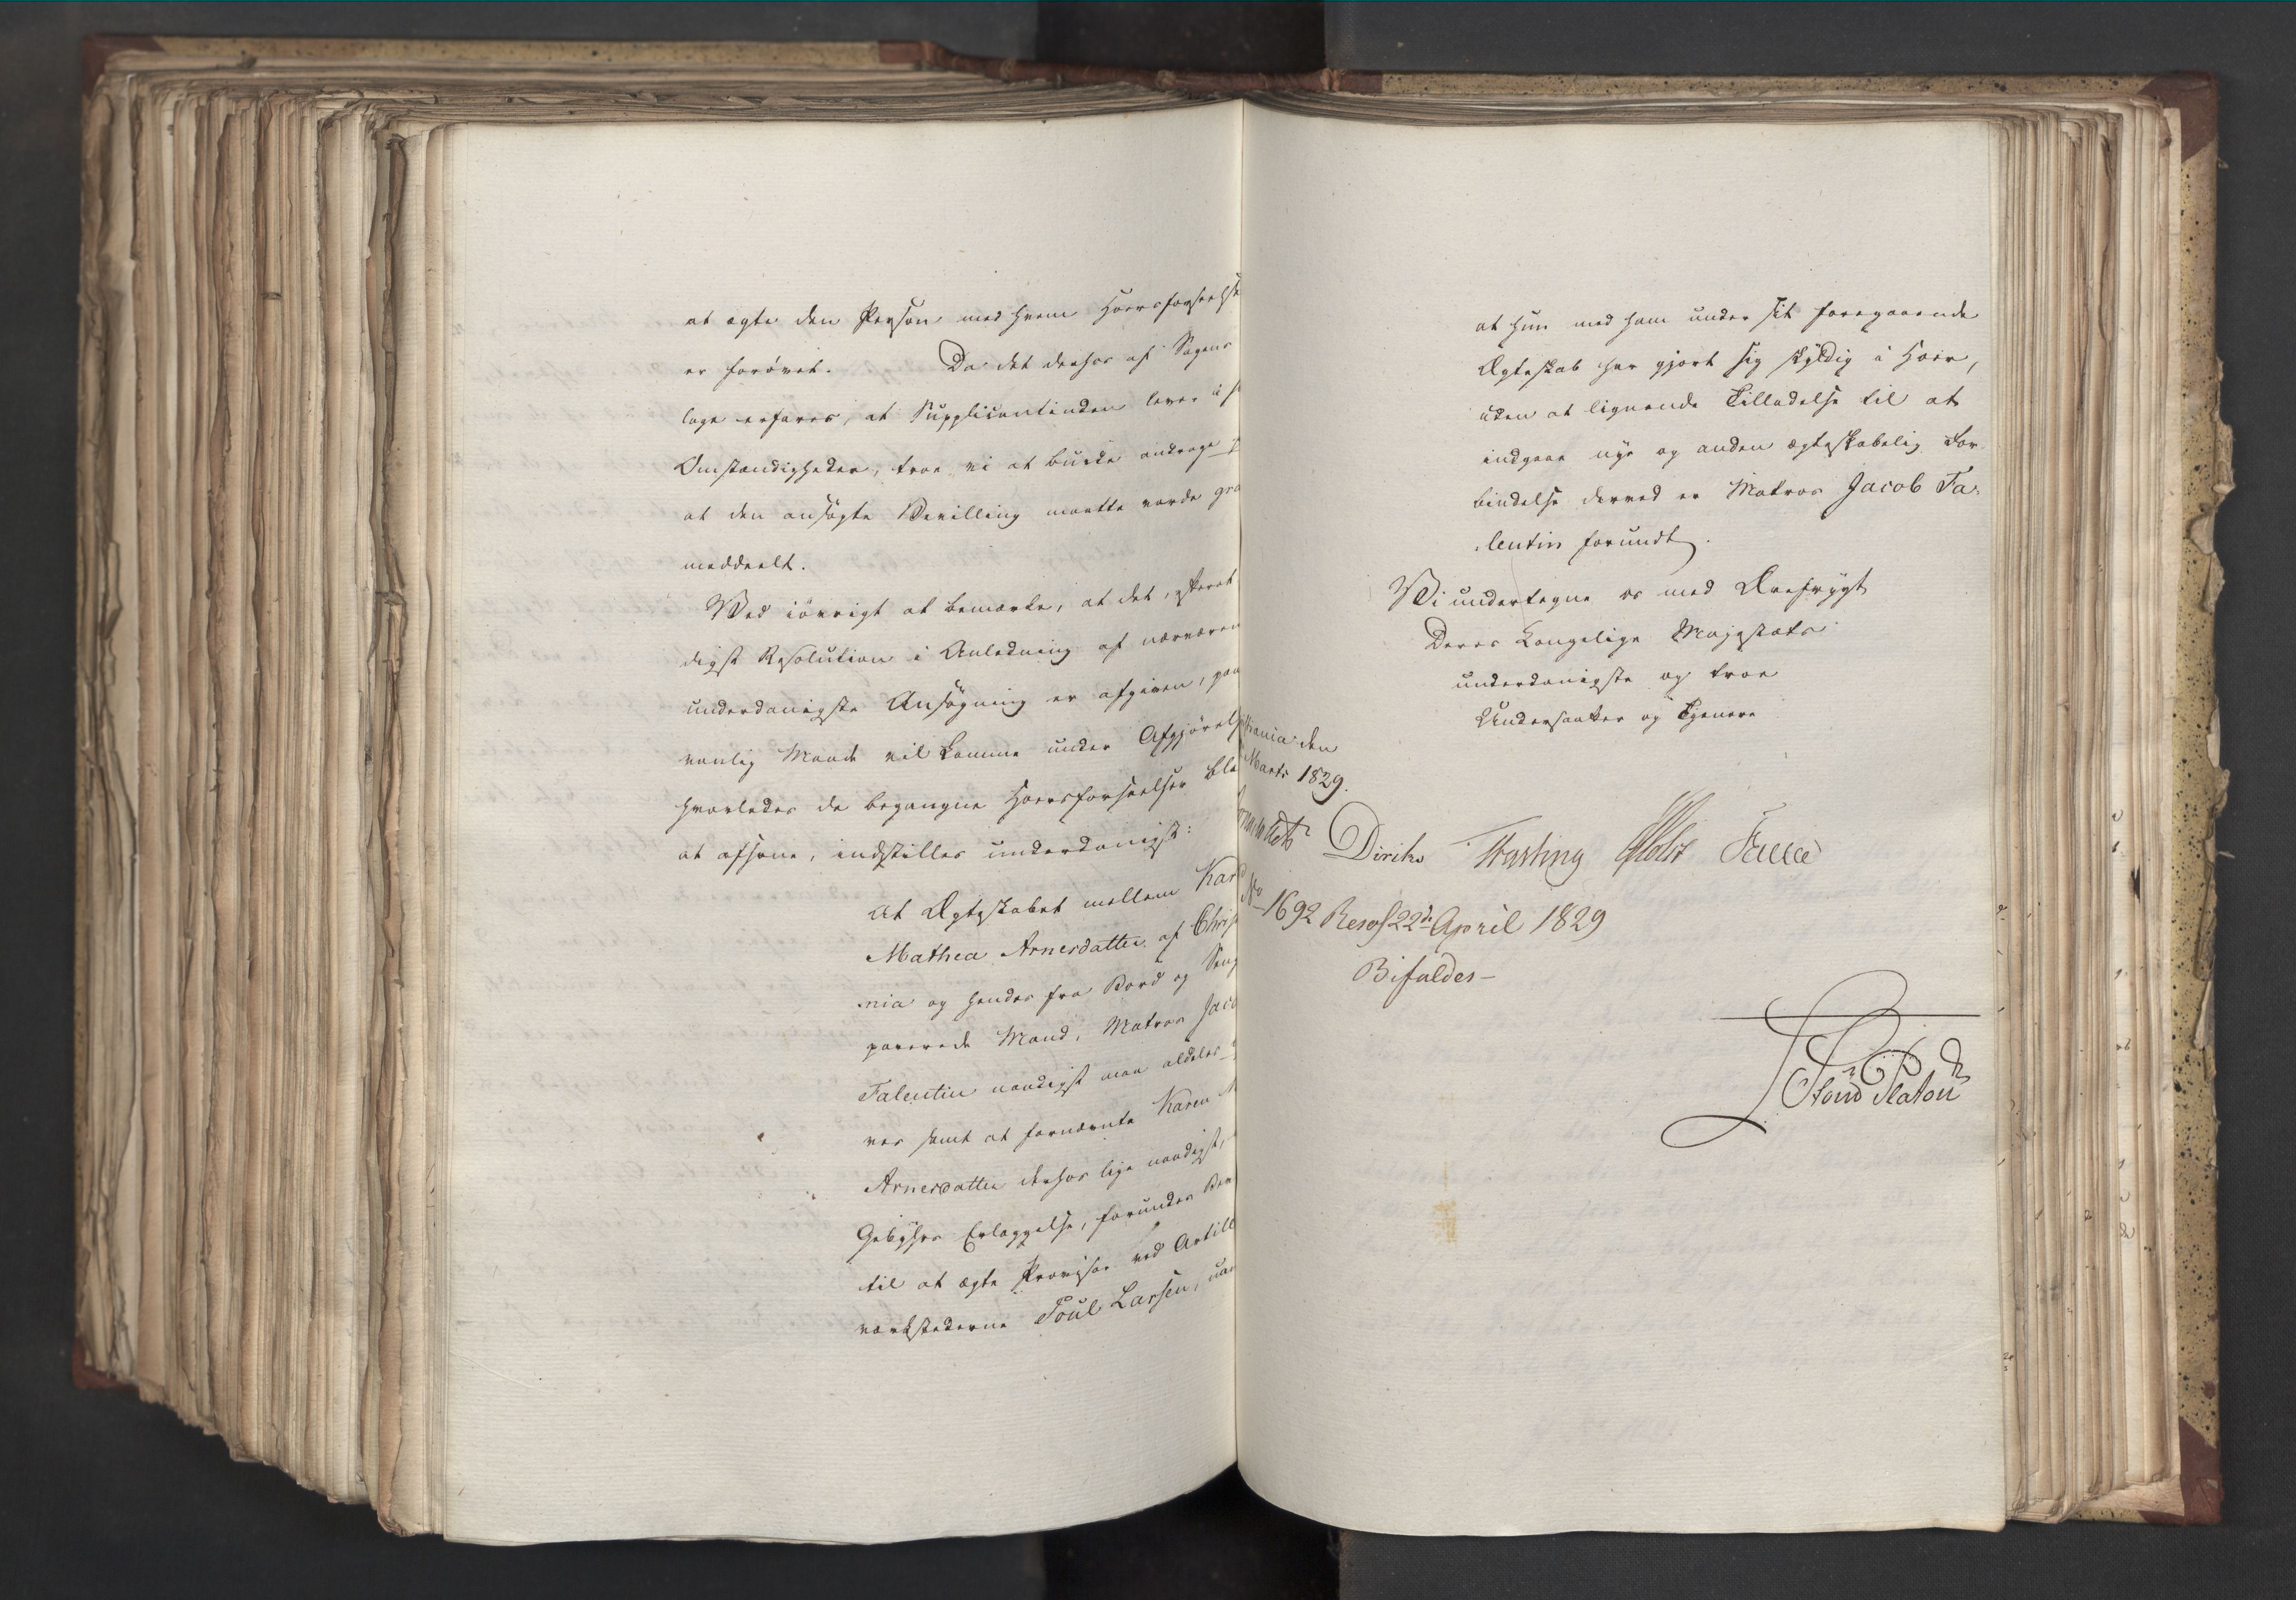 at ægte den Person med hvem Hoersforseelse
er forøvet. Da det derhos af Sagens
lage erfares, at Supplicantinden lever i
Omstændigheder, troe vi at burde andrage
at den ansøgte Bevilling maatte vorde
meddeelt.
Ved iøvrigt at bemærke, at det,
digst Resolution i Anledning af nærværen
underdanigste Ansøgning er afgiven, paa
vanlig Maade vil komme under Afgjørelse
hvorledes de begangne Hoersforseelser
at afsone, indstilles underdanigst:
At Ægteskabet mellem Kar
Mathea Arnesdatter af Chris
nia og hendes fra Bord og Seng
parerede Mand, Matros Jaco
Falentin naadigst maa aldeles
ves samt at fornævnte Karen M
Arnesdatter derhos lige naadigst,
Gebyhrs Erlæggelse, forundes Bev
til at ægte Provisor ved Artill
værkstederne Poul Larsen,
at hun med ham under sit foregaaende
Ægteskab har gjort sig skyldig i Hoer,
uden at lignende Tilladelse til at
indgaae nye og anden ægteskabelig For
bindelse derved er Matros Jacob Fa
lentin forundt.
Vi undertegne os med Ærefrygt
Deres Kongelige Majestæts
underdanigste og troe
Undersaatter og Tjenere
tiania den
Marts 1829.
Diriks Treschow Holst Fasting
No 1692 Resol 22de April 1829
Bifaldes-